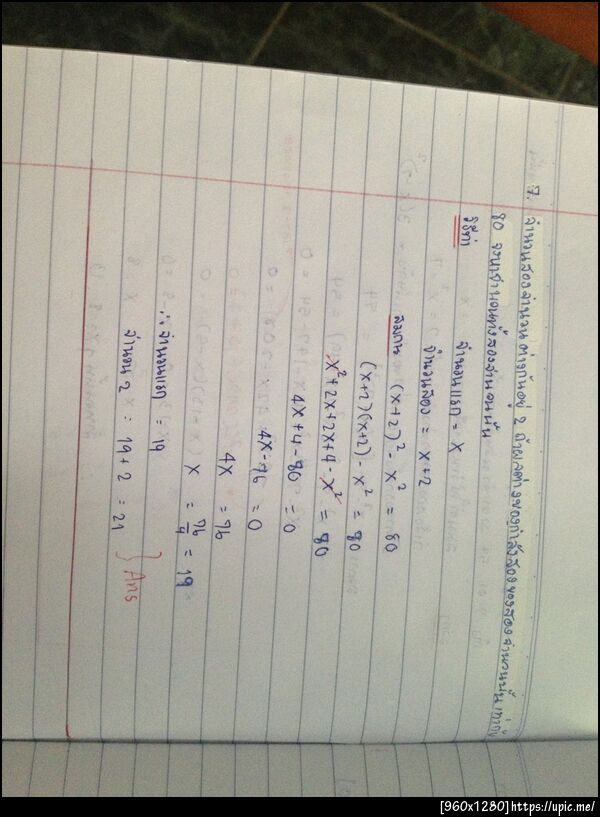 7. จำนวนสองจำนวนต่างกันอยู่ 2 ถ้าผลต่างของกำลังสองของสองจำนวนนั้นเท่ากับ
80 จงหาจำนวนทั้งสองจำนวนนั้น
วิธีทำ จำนวนแรก = x
จำนวนสอง = x+2
สมการ (x+2)² - x² = 80
(x+2)(x+2) - x² = 80
x² + 2x + 2x + 4 - x² = 80
4x + 4 - 80 = 0
4x - 76 = 0
4x = 76
x = 76/4 = 19
∴ จำนวนแรก = 19
จำนวน 2 = 19 + 2 = 21 } Ans
[960x1280]https://upic.me/